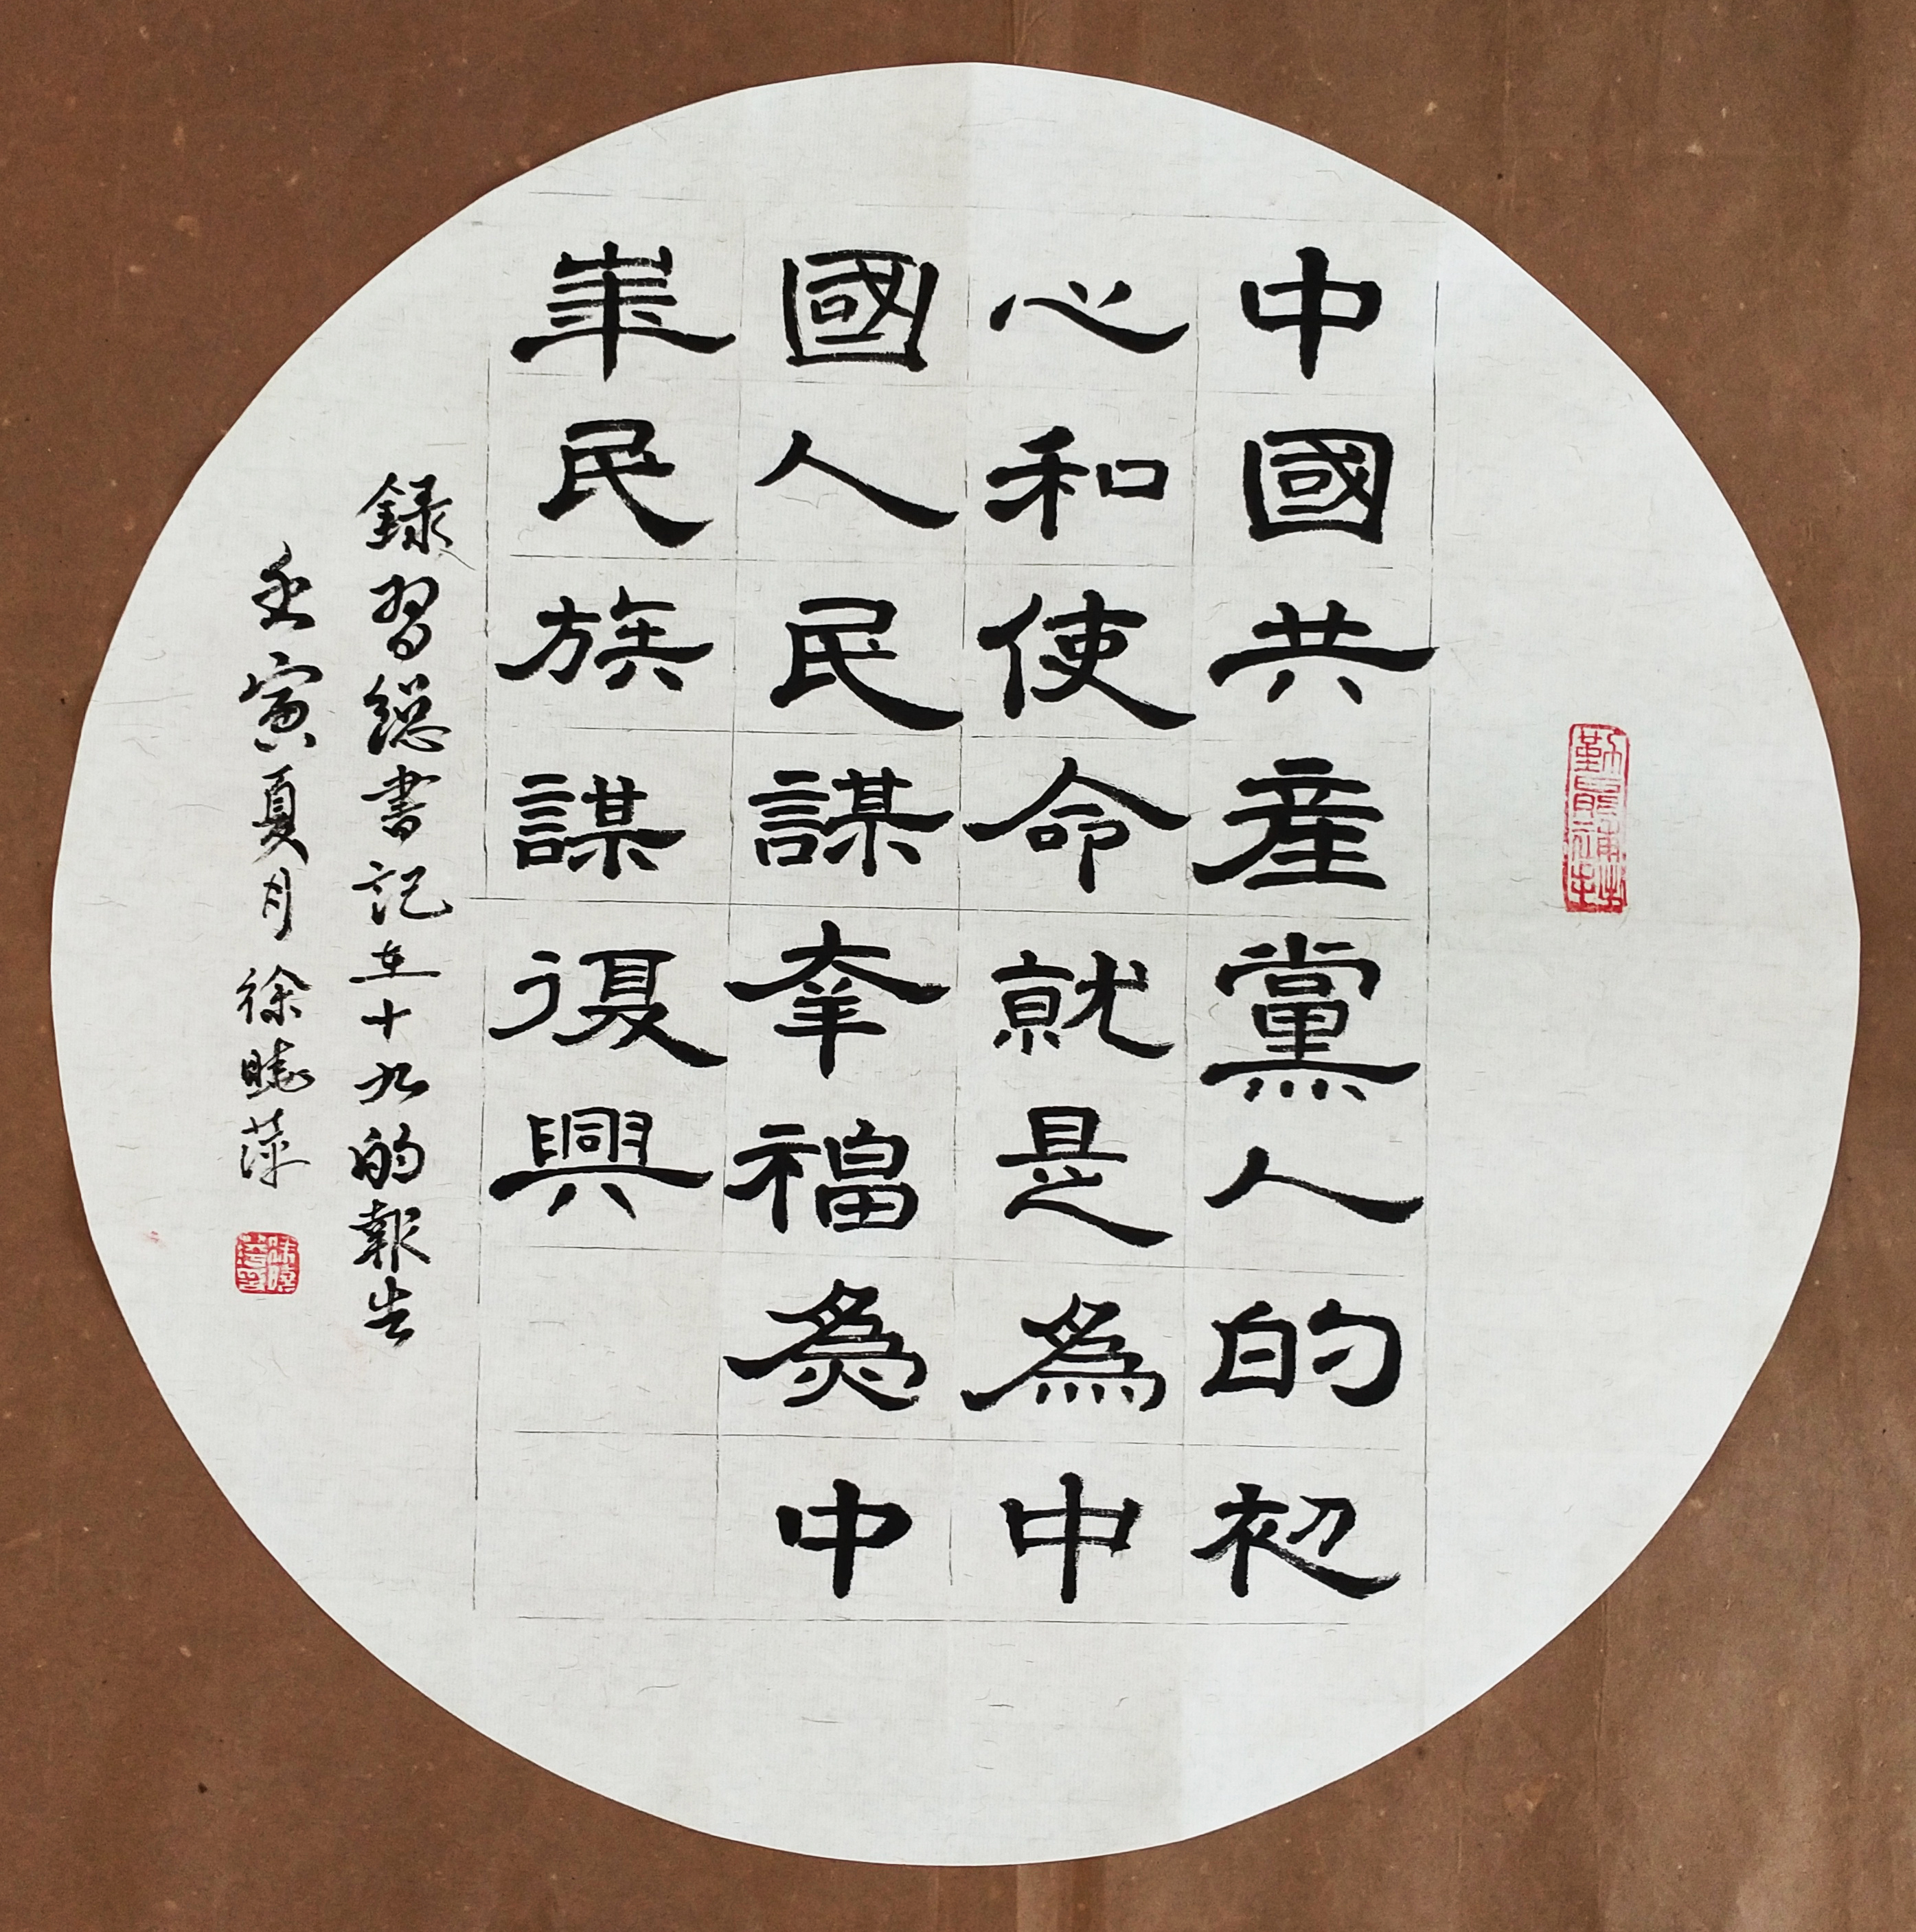 中國共產黨人的初
心和使命就是為中
國人民謀幸福為中
華民族謀復興
録習總書記在十九的報告
壬寅夏月徐曉萍
勤能補拙